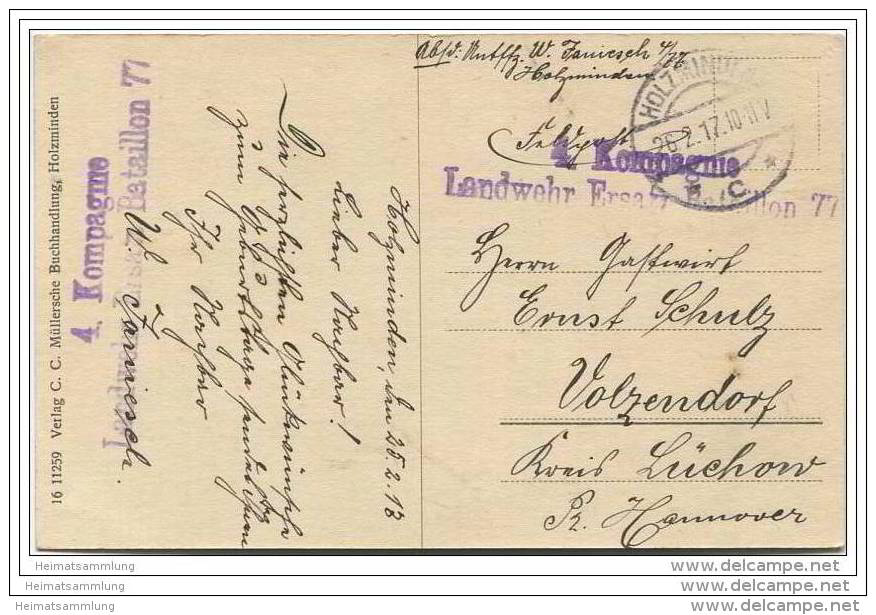 Absd: Untffz. W. Janiesch 4/77
Holzminden
Feldpost
HOLZMINDEN
26.2.17.10-11V
4. Kompagnie
Landwehr Ersatz Bataillon 77
Herrn Gastwirt
Ernst Schulz
Volzendorf
Kreis Lüchow
Pr. Hannover
Holzminden, den 25.2.17
Lieber Nachbar!
Die herzlichsten Glückwünsche
zum Geburtstage sendet Ihnen
Ihr Nachbar
W. Janiesch.
4. Kompagnie
Landwehr Ersatz Bataillon 77
16 11259 Verlag C. C. Müllersche Buchhandlung, Holzminden
Heimatsammlung
Heimatsammlung
Heimatsammlung
www.delcampe.net
www.delcampe.net
www.delcampe.net